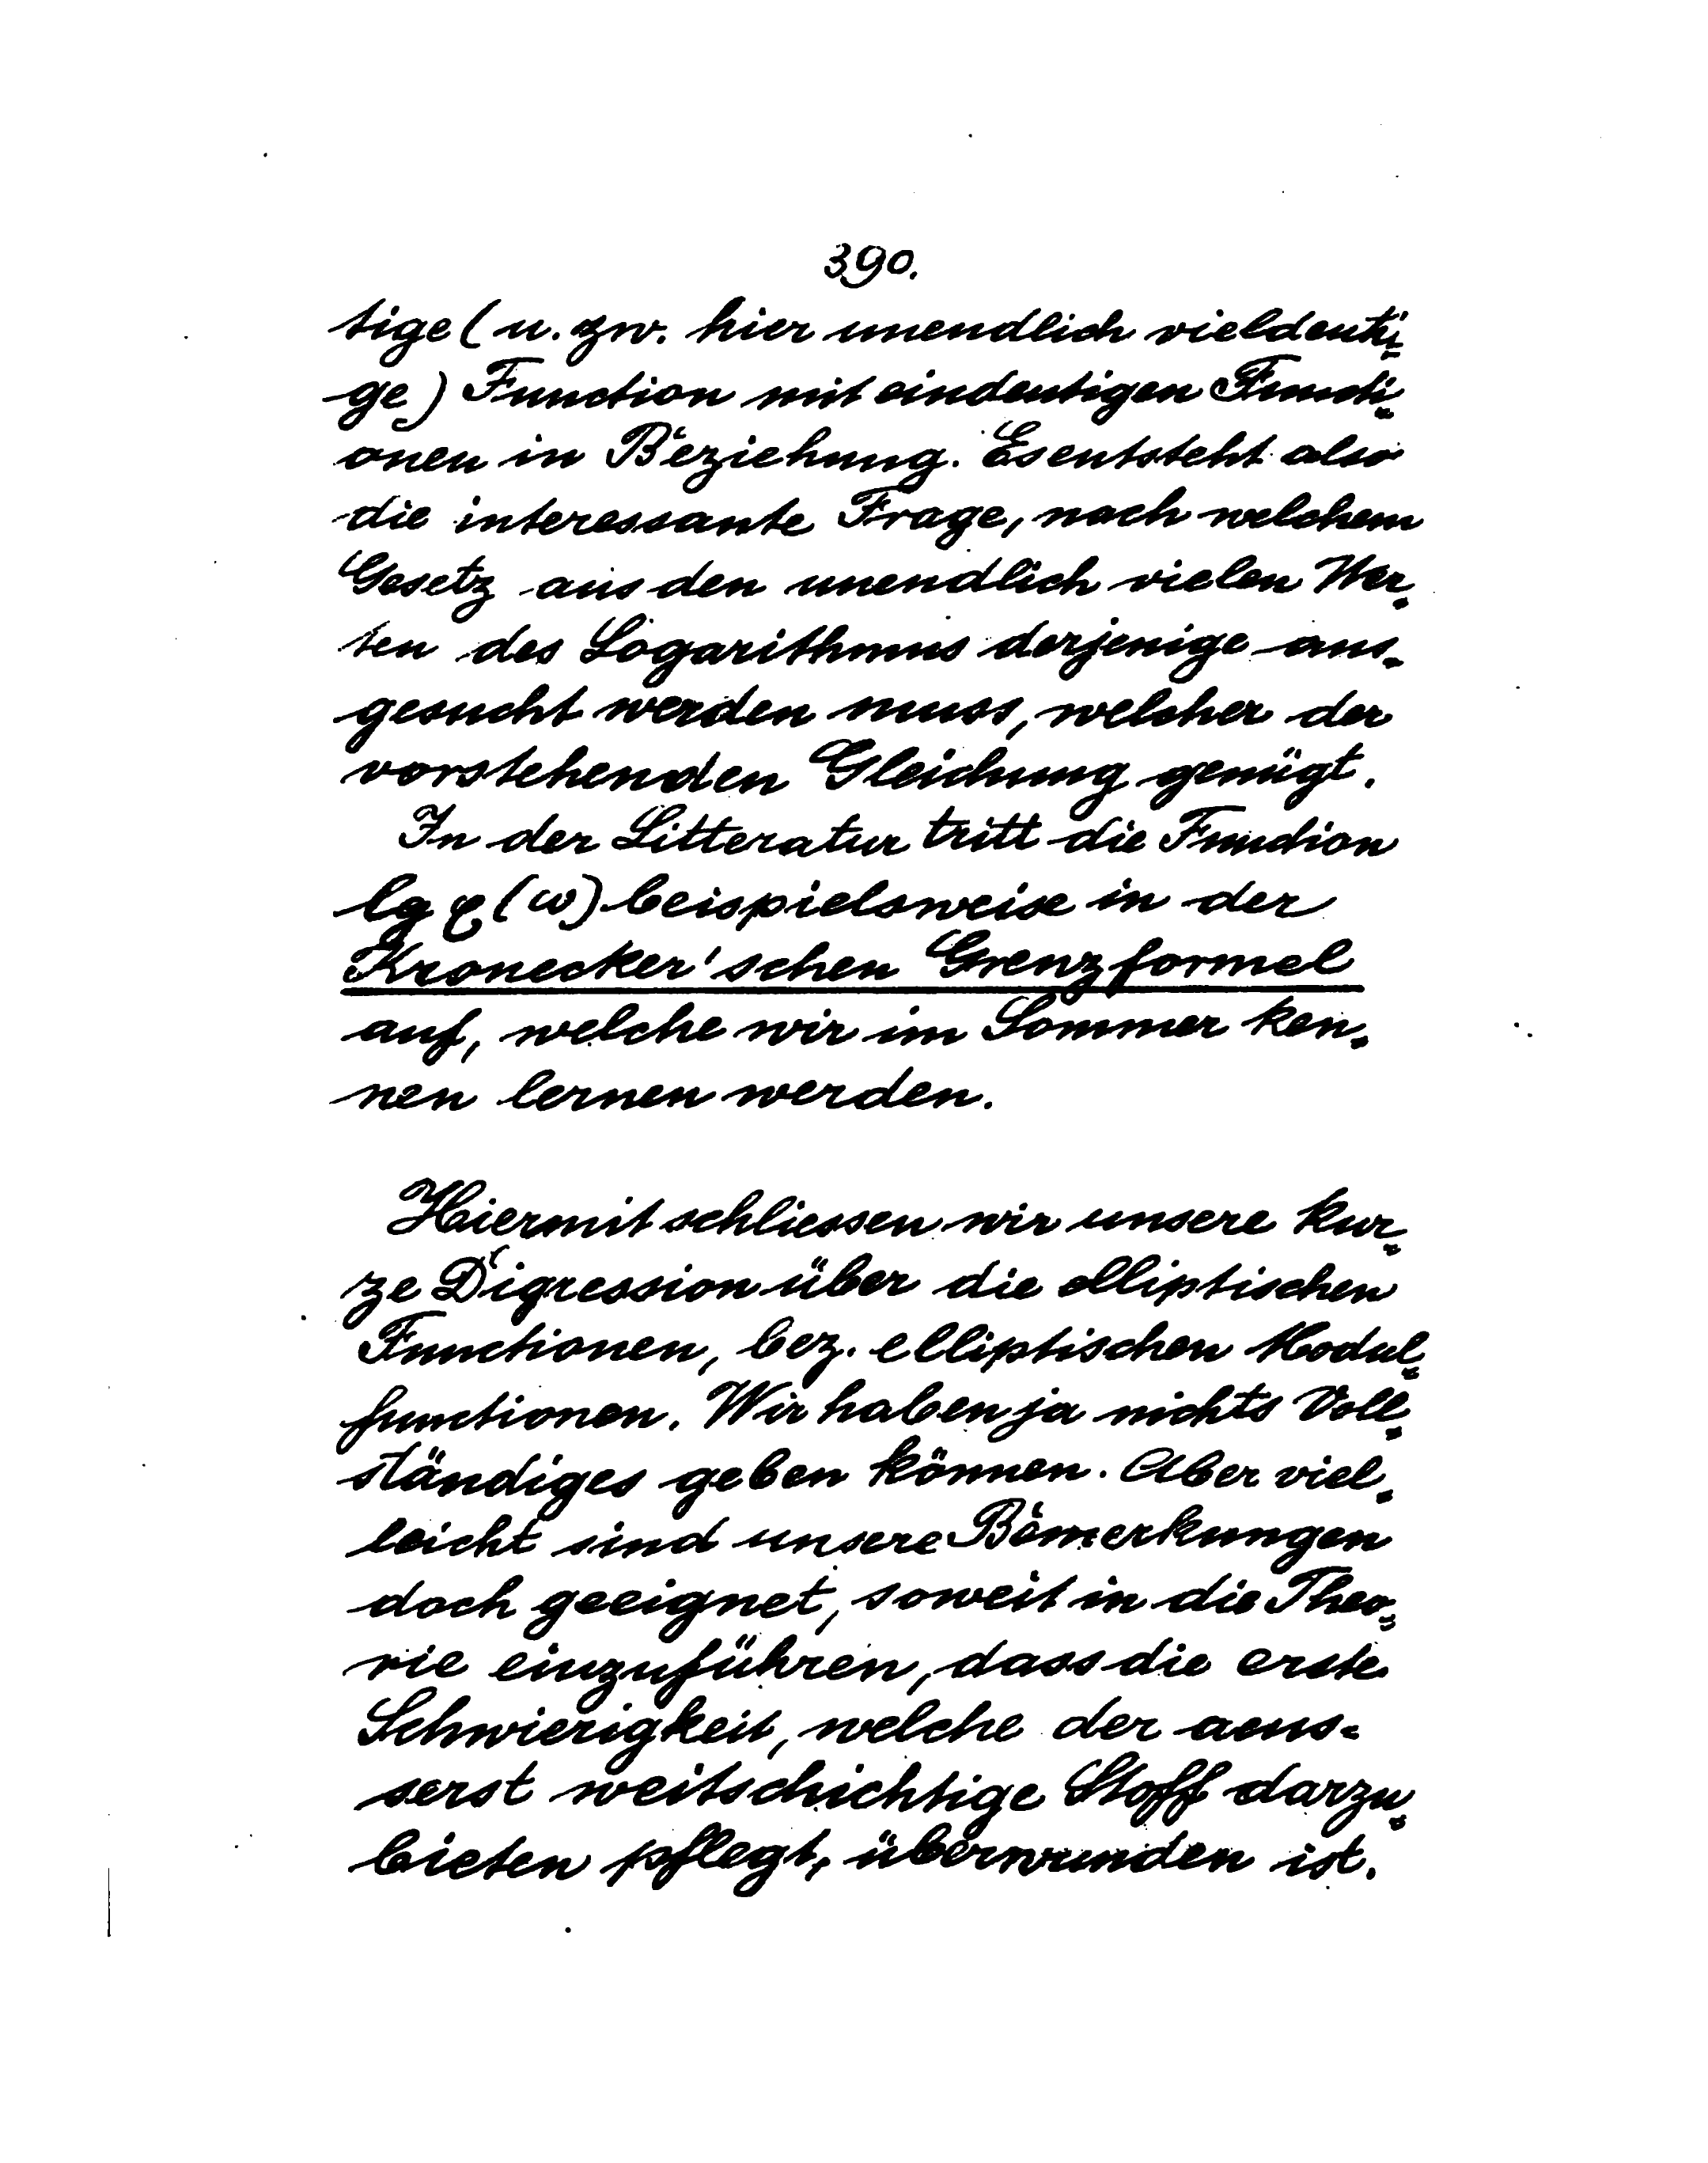 390.
tige (u. zw. hier unendlich vieldeuti-
ge) Function mit eindeutigen Functi-
onen in Beziehung. Es entsteht also
die interessante Frage, nach welchem
Gesetz aus den unendlich vielen Wer-
ten des Logarithmus derjenige aus-
gesucht werden muss, welcher der
vorstehenden Gleichung genügt.
In der Litteratur tritt die Function
lg φ(ω) beispielsweise in der
Kronecker'schen Grenzformel
auf, welche wir im Sommer ken-
nen lernen werden.
Hiermit schliessen wir unsere kur-
ze Digression über die elliptischen
Functionen, bez. elliptischen Modul-
functionen. Wir haben ja nichts Voll-
ständiges geben können. Aber viel-
leicht sind unsere Bemerkungen
doch geeignet, soweit in die Theo-
rie einzuführen, dass die erste
Schwierigkeit, welche der aeus-
serst weitschichtige Stoff darzu-
bieten pflegt, überwunden ist.